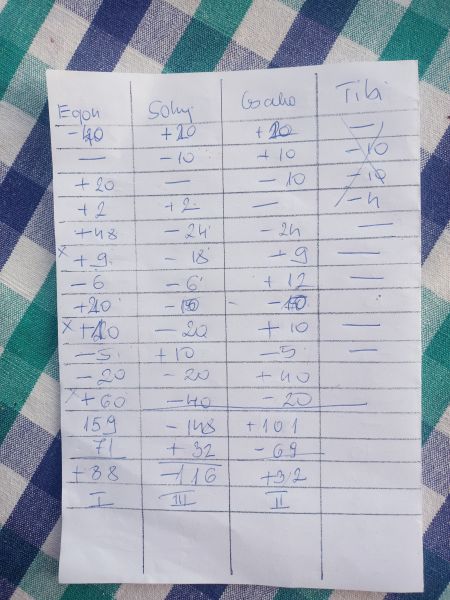 Egon Tibi
-40 +20 +20 —
— -10 +10 -10
+20 — -10 -10
+2 +2 — -4
+48 -24 -24 —
x +9 -18 +9 —
-6 -6 +12 —
+20 -10 -10
x +10 -20 +10 —
-5 +10 -5 —
-20 -20 +40
x +60 -40 -20
159 -148 +101
71 +32 -69
+88 -116 +32
I III II